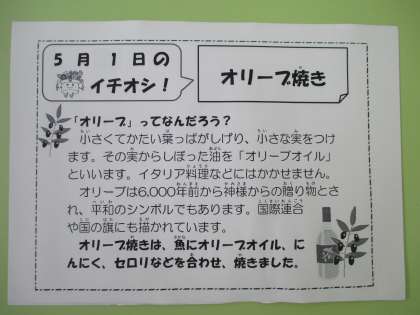 5月1日の
イチオシ！
オリーブ焼き
「オリーブ」ってなんだろう？
小さくてかたい葉っぱがしげり、小さな実をつけ
ます。その実からしぼった油を「オリーブオイル」
といいます。イタリア料理などにはかかせません。
オリーブは6,000年前から神様からの贈り物とさ
れ、平和のシンボルでもあります。国際連合
や国の旗にも描かれています。
オリーブ焼きは、魚にオリーブオイル、に
んにく、セロリなどを合わせ、焼きました。